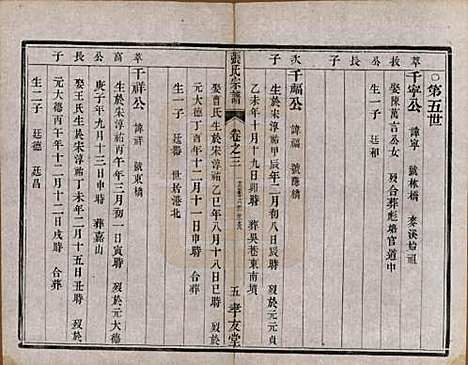 ○第五世
萃 千寧公 諱寧 號林橋 麥溪始祖
長 娶陳萬言公女 歿合葬彪塘官道中
子 生一子 廷和
次 千福公 諱福 號隱橋
生於宋淳祐甲辰年二月初八日辰時 歿於元元貞
子 乙未年十月十九日卯時 葬吳巷東南墳
娶曹氏生於宋淳祐乙巳年八月十八日巳時 歿於
元大德丁酉年十二月初一日申時 合葬
生一子 廷 世居港北
張氏宗譜 卷之三 五 孝友堂
萃 千祥公 諱祥 號東橋
高 生於宋淳祐丙午年三月初一日寅時 歿於元大德
公 庚子年九月十三日時 葬嘉山
長 娶王氏生於宋淳祐丁未年二月十五日丑時 歿於
元大德丙午年十二月十二日戌時 合葬
子 生二子 廷德 廷昌